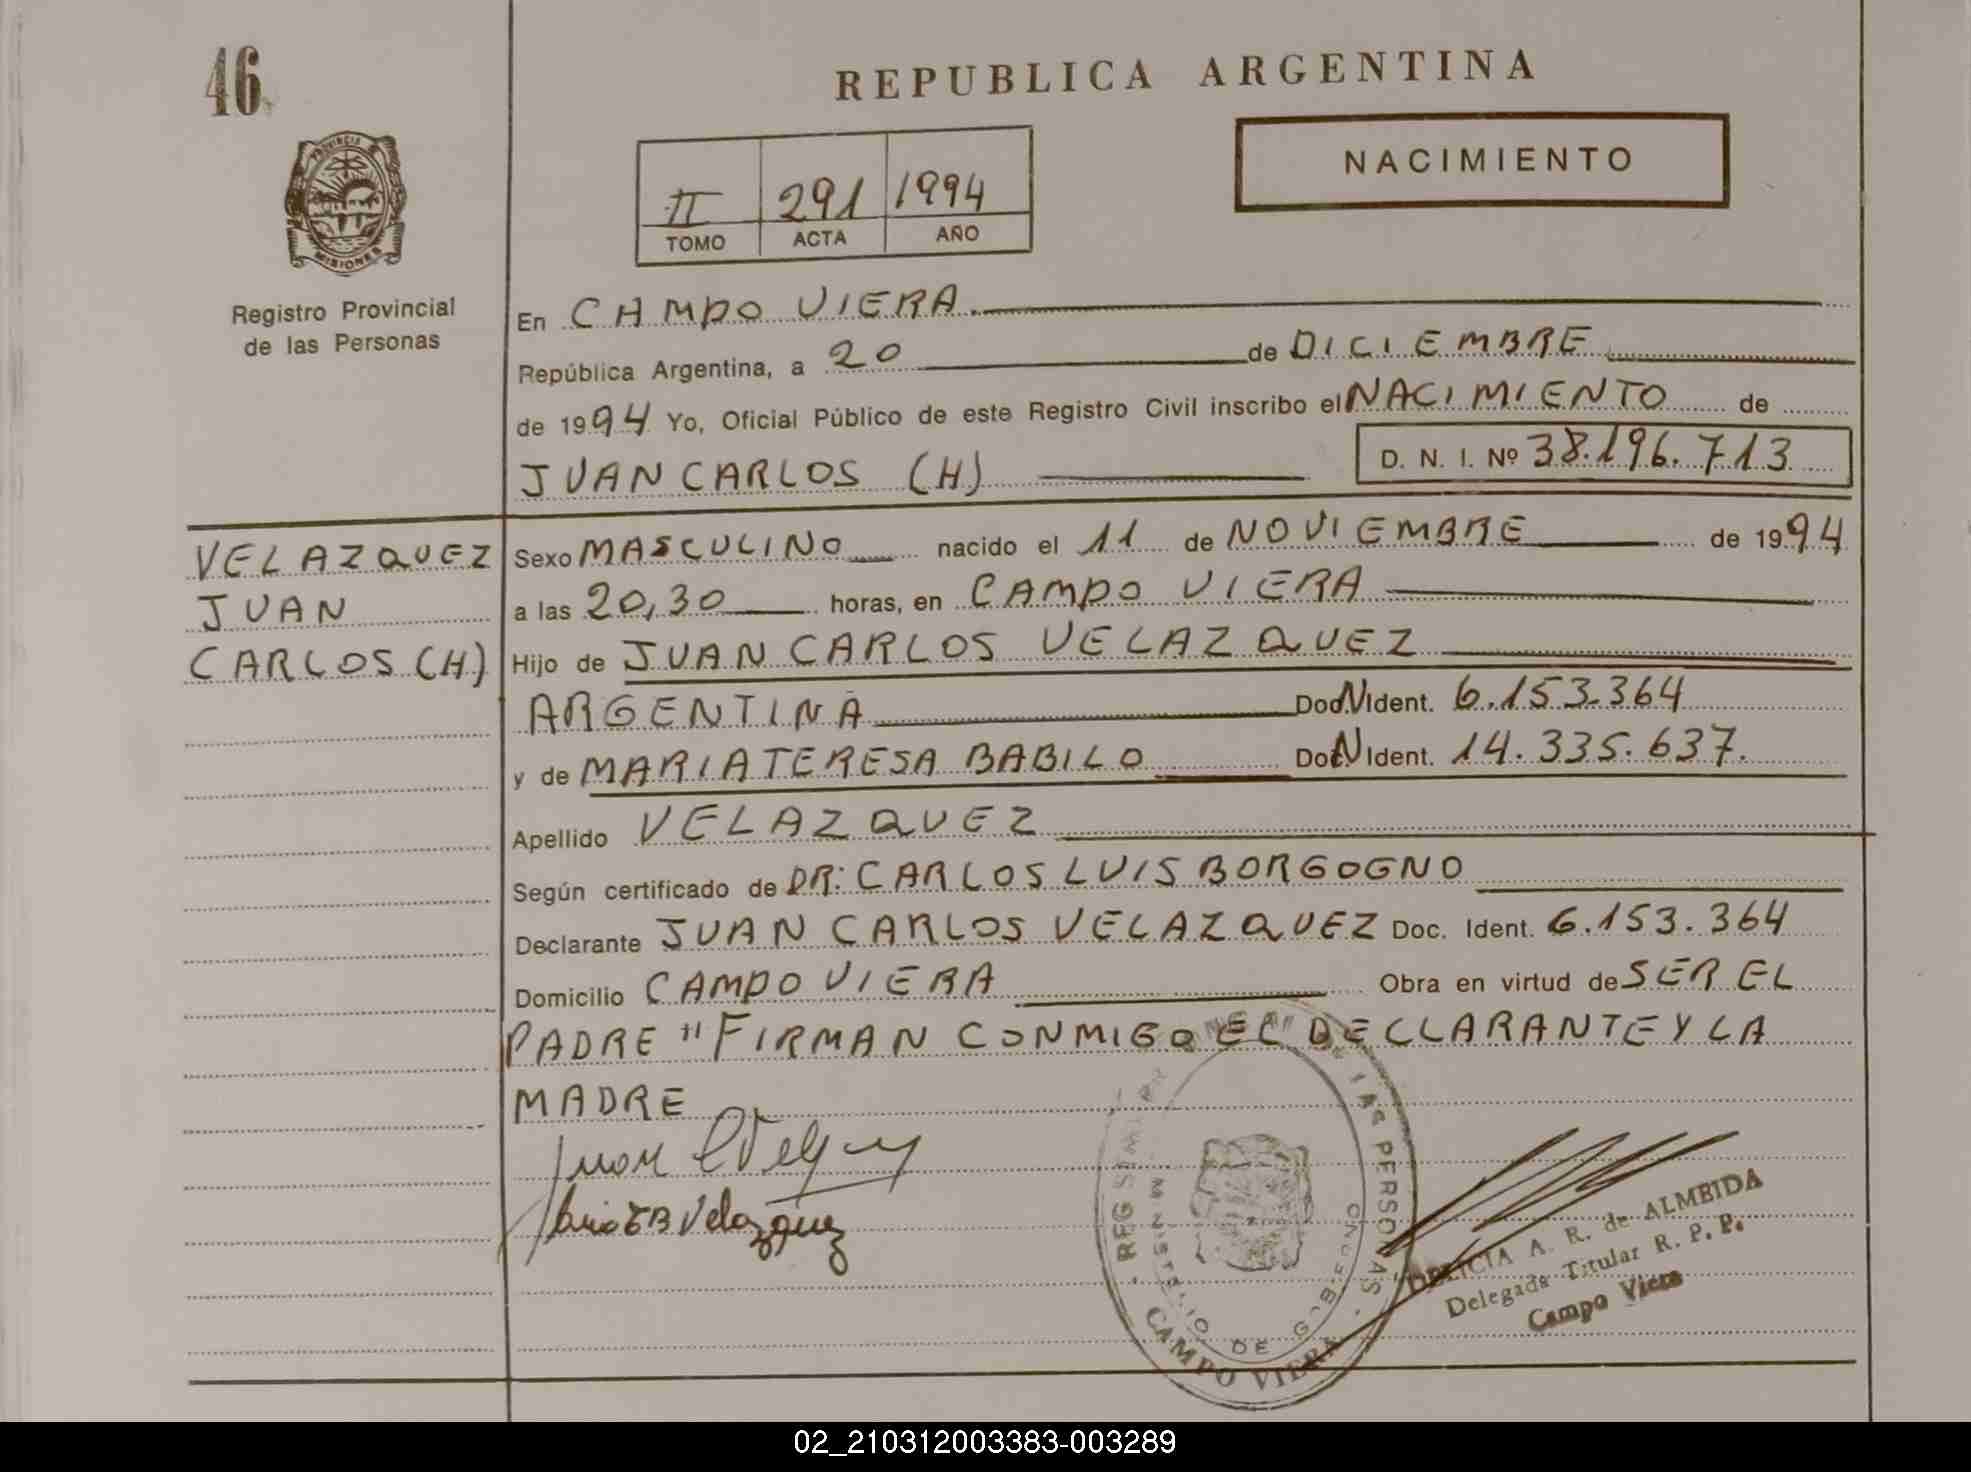 46
REPUBLICA ARGENTINA
NACIMIENTO
II 291 1994
TOMO ACTA AÑO
PROVINCIA
MISIONES
Registro Provincial
de las Personas
En CAMPO VIERA
República Argentina, a 20 de DICIEMBRE
de 1994 Yo, Oficial Público de este Registro Civil inscribo el NACIMIENTO de
JUAN CARLOS (H) D. N. I. Nº 38.196.713
VELAZQUEZ
JUAN
CARLOS (H)
Sexo MASCULINO nacido el 11 de NOVIEMBRE de 1994
a las 20,30 horas, en CAMPO VIERA
Hijo de JUAN CARLOS VELAZQUEZ
ARGENTINA Doc. N Ident. 6.153.364
y de MARIA TERESA BABILO Doc. N Ident. 14.335.637.
Apellido VELAZQUEZ
Según certificado de DR: CARLOS LUIS BORGOGNO
Declarante JUAN CARLOS VELAZQUEZ Doc. Ident. 6.153.364
Domicilio CAMPO VIERA Obra en virtud de SER EL
PADRE "FIRMAN CONMIGO EL DECLARANTE Y LA
MADRE
Juan C Velazquez
Maria T B Velazquez
LAS PERSONAS
MINISTERIO DE GOBIERNO
CAMPO VIERA
DELICIA A. R. de ALMEIDA
Delegada Titular R. P. P.
Campo Viera
02_210312003383-003289